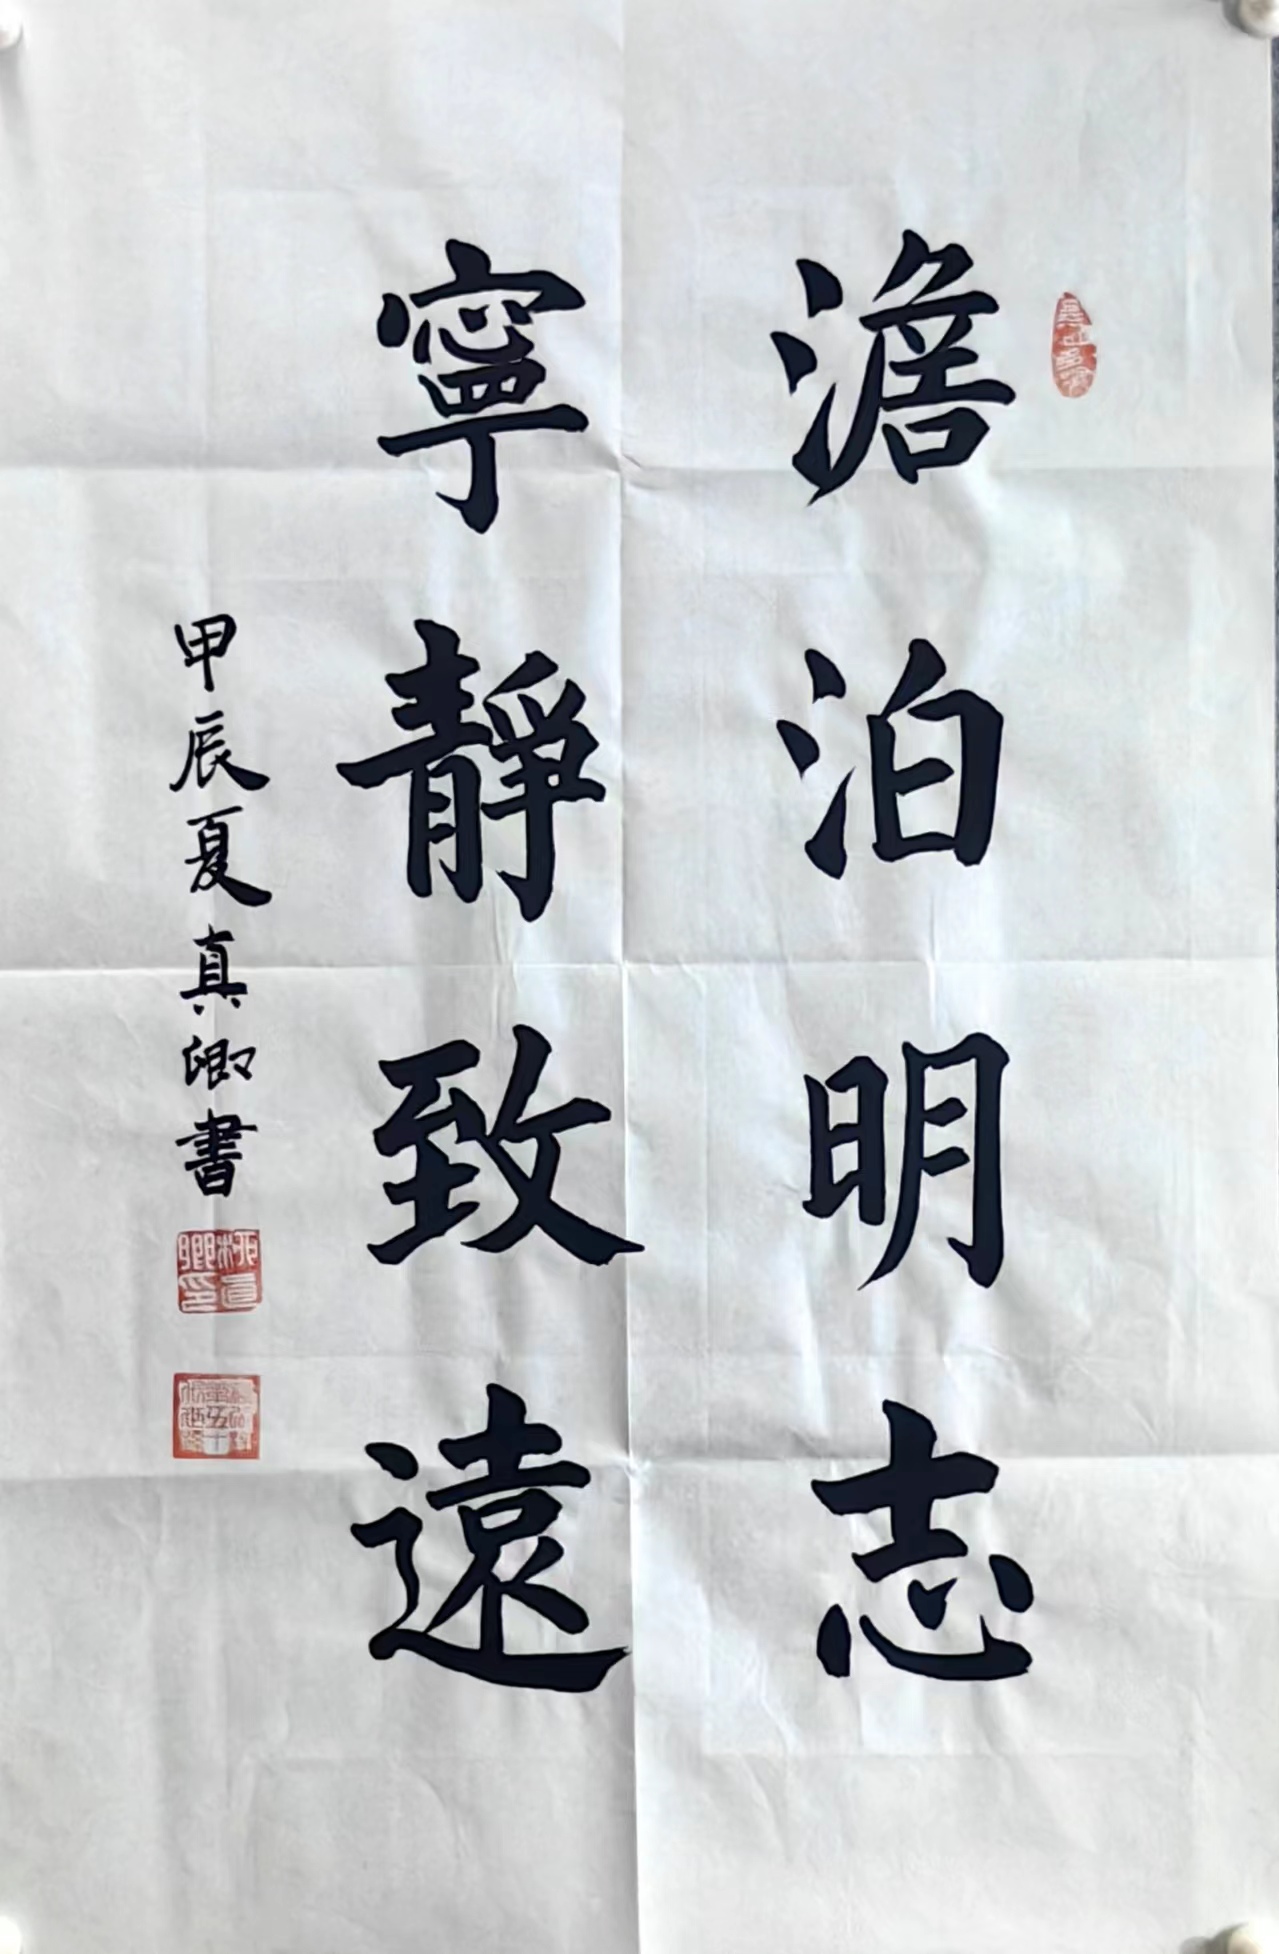 澹泊明志
寧靜致遠
甲辰夏真卿書